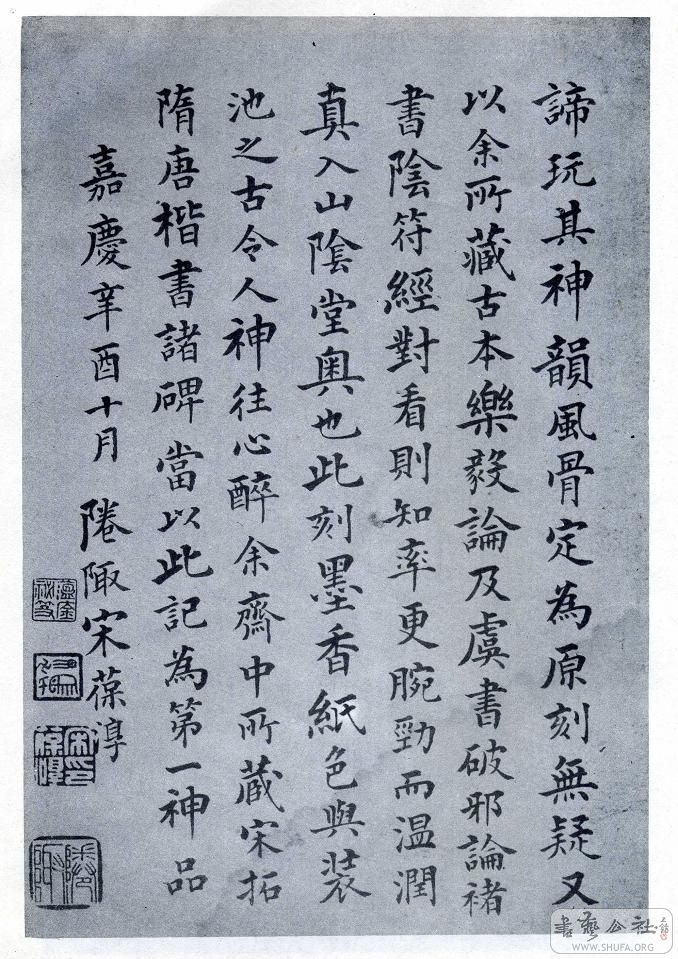 諦玩其神韻風骨定為原刻無疑又
以余所藏古本樂毅論及虞書破邪論褚
書陰符經對看則知率更腕勁而温潤
真入山陰堂奥也此刻墨香紙色與装
池之古令人神往心醉余齋中所蔵宋拓
隋唐楷書諸碑當以此記為第一神品
嘉慶辛酉十月 陭陬宋葆淳
書藝公社
WWW.SHUFA.ORG